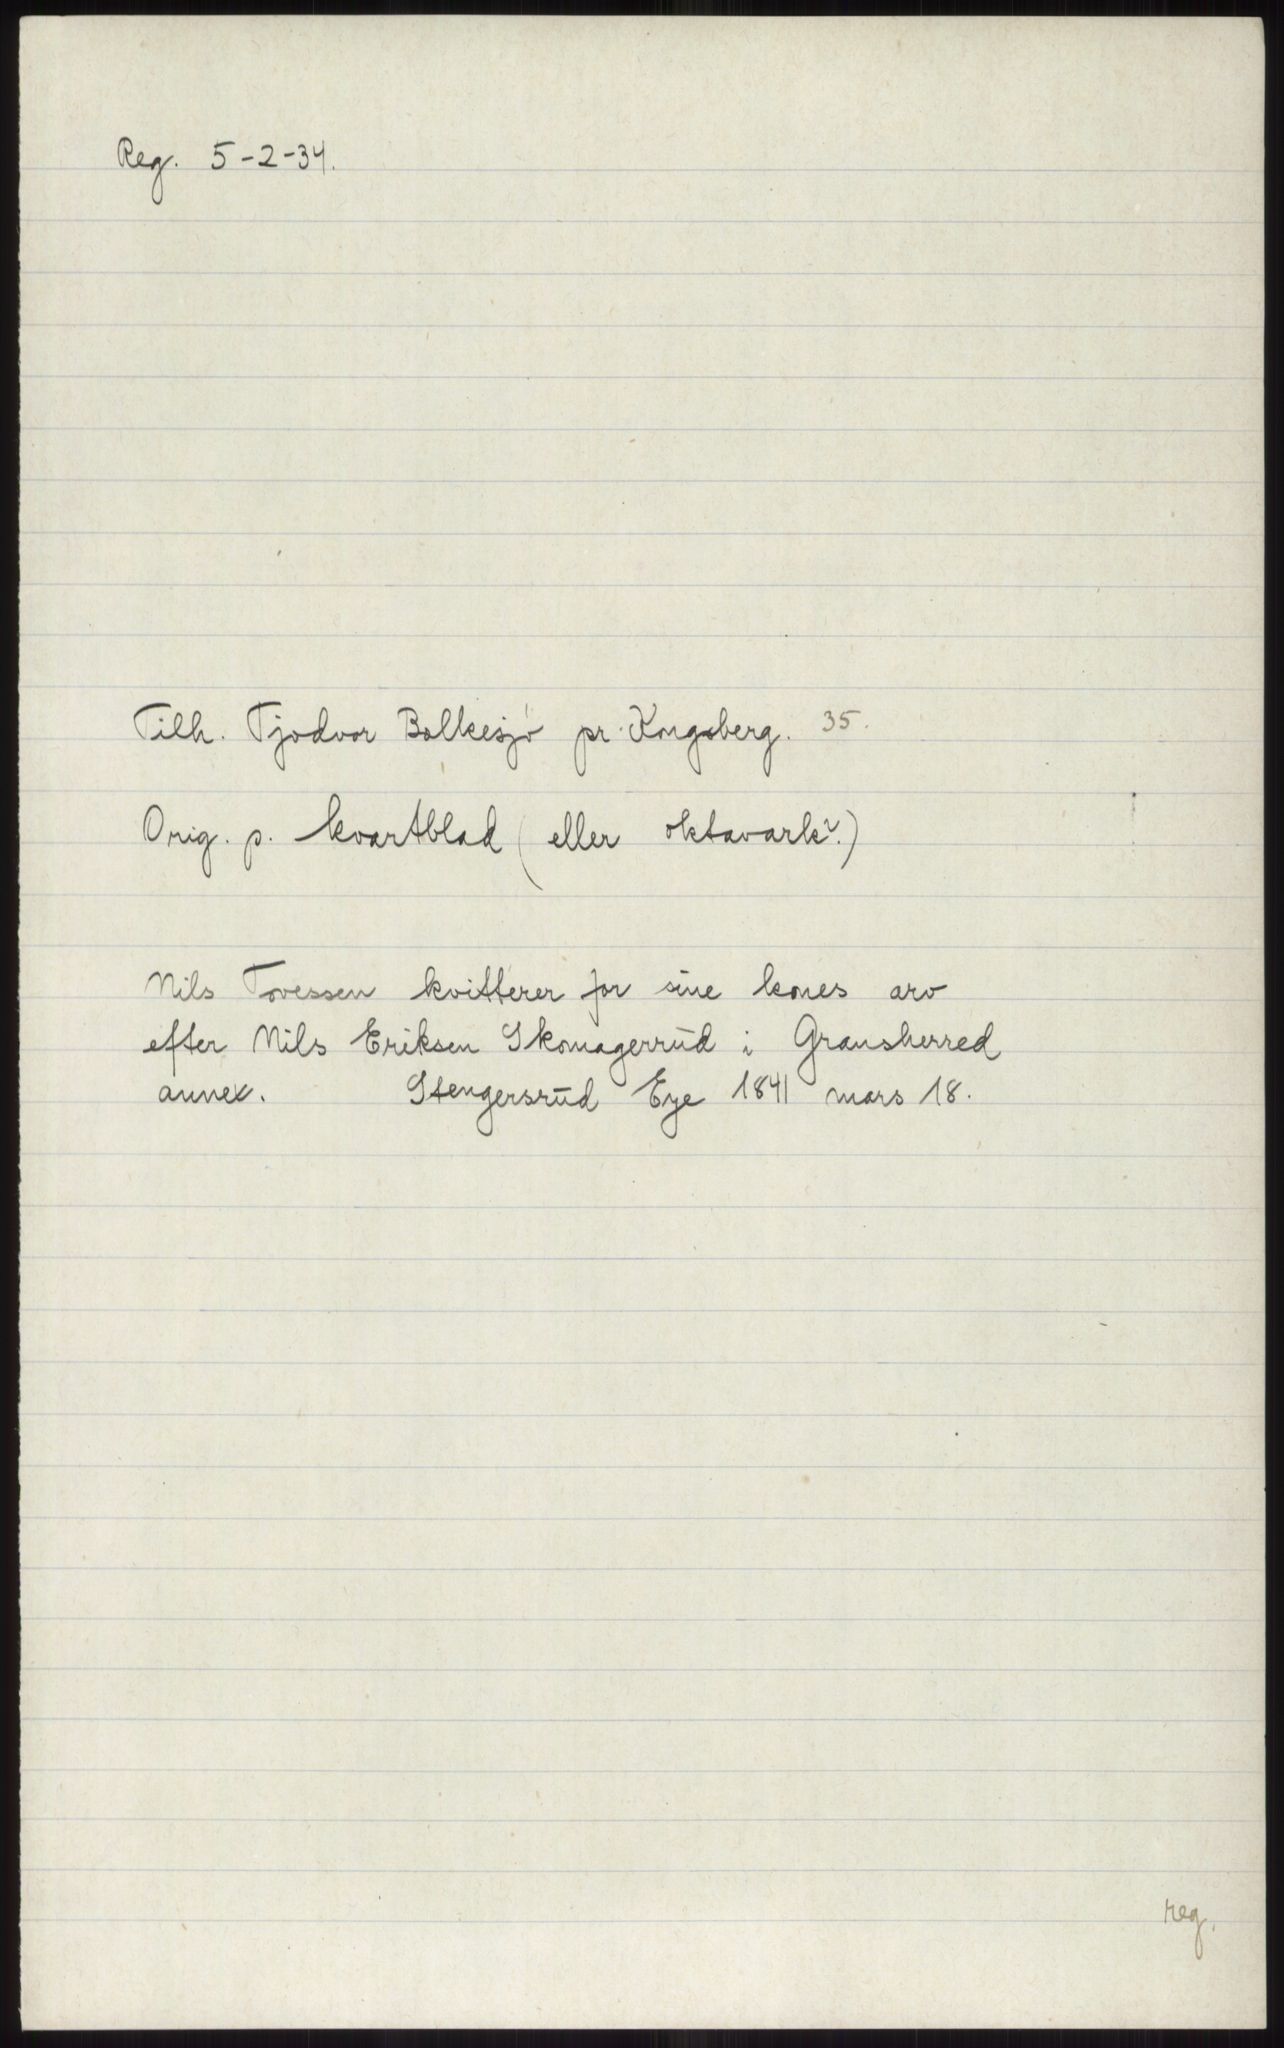 Reg. 5-2-34.
Tilh. Tjodvor Bolkesjö pr. Kongsberg. 35.
Orig. p. kvartblad (eller oktavark?)
Nils Tovessen kvitterer for sine kones arv
efter Nils Eriksen Skomagerrud i Gransherred
annex. Stengersrud Eye 1841 mars 18.
reg.